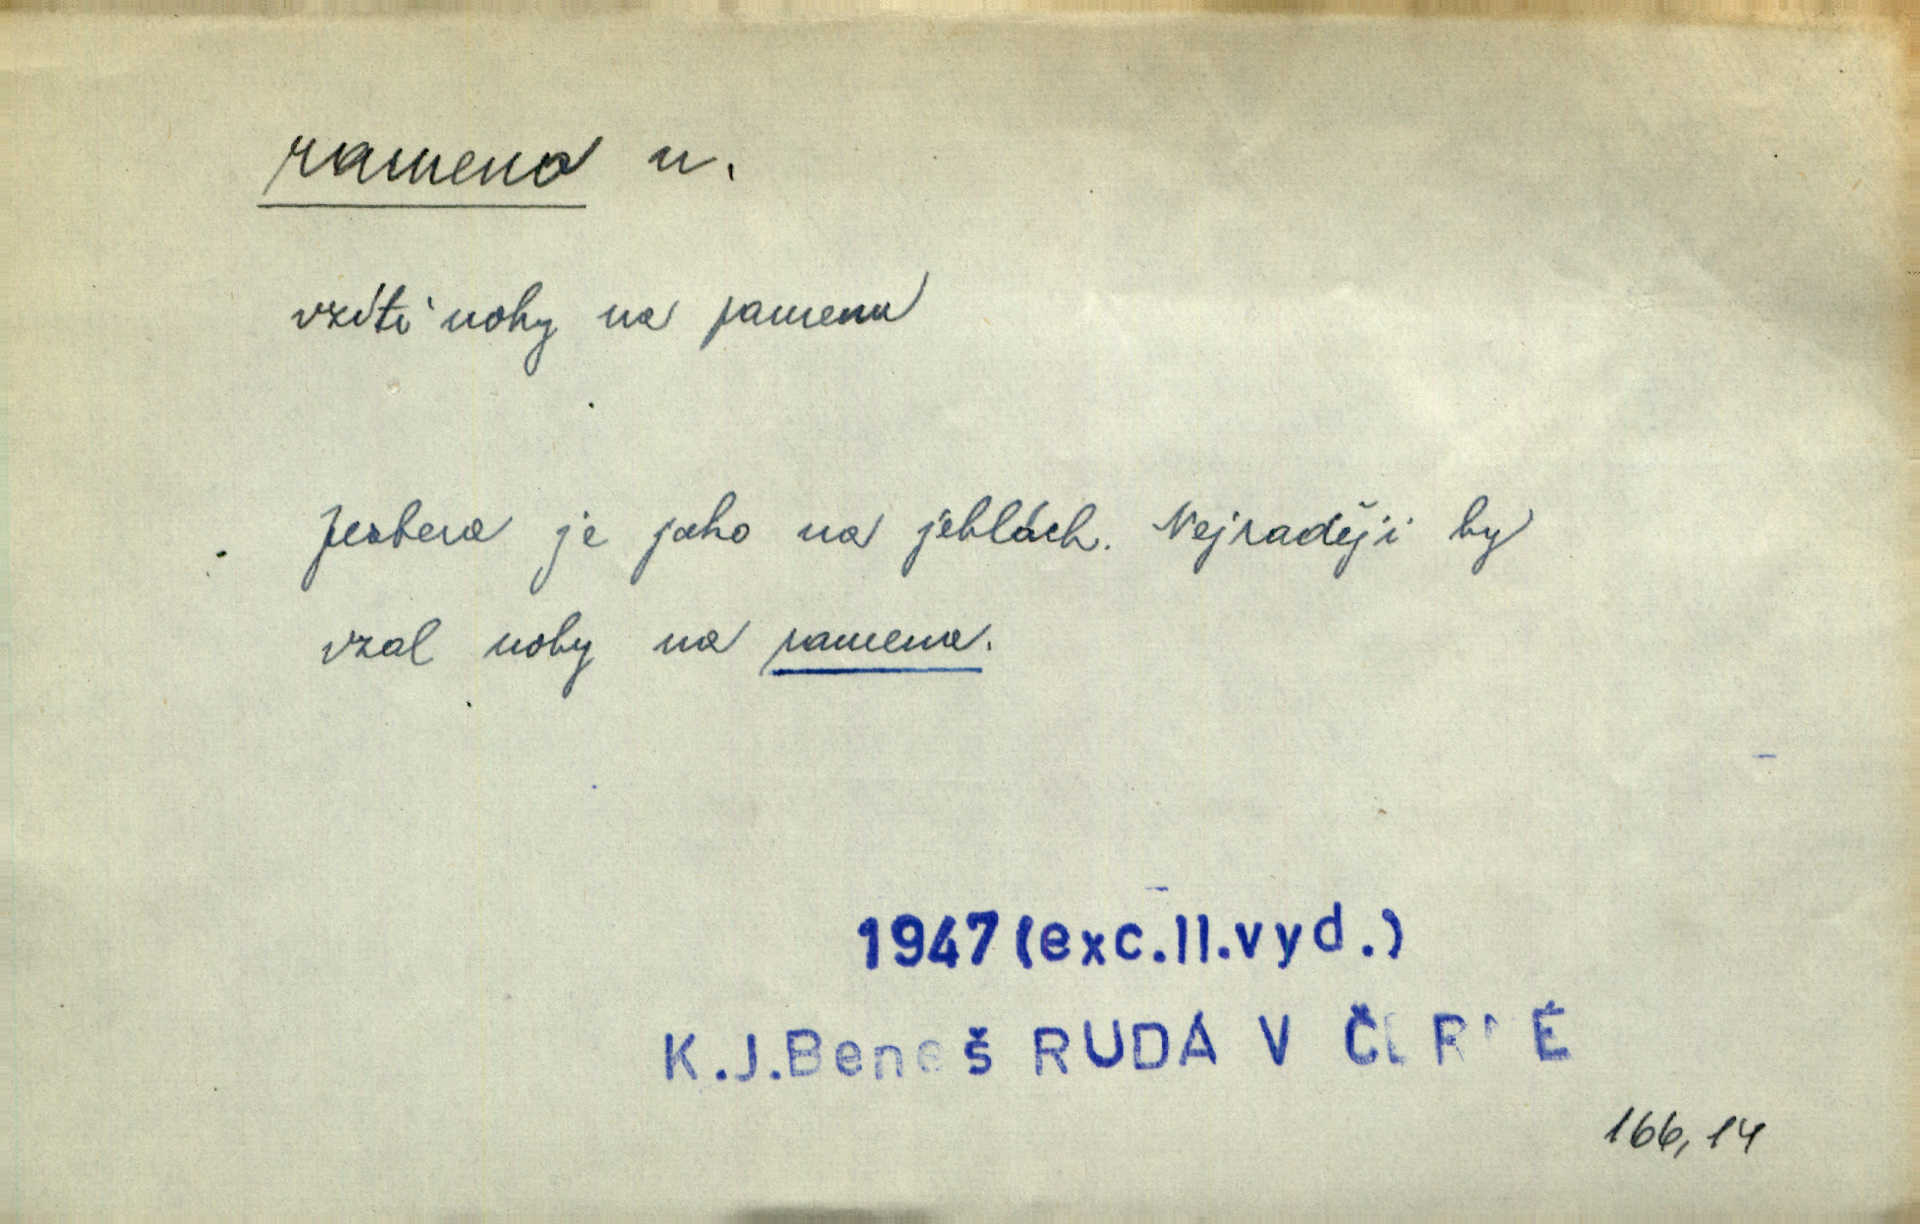 rameno n.
vzíti nohy na ramena
je jako na jehlách. Nejraději by
vzal nohy na ramena.
1947 (exc. II. vyd.)
K. J. Beneš RUDÁ V ČERNÉ
166, 14